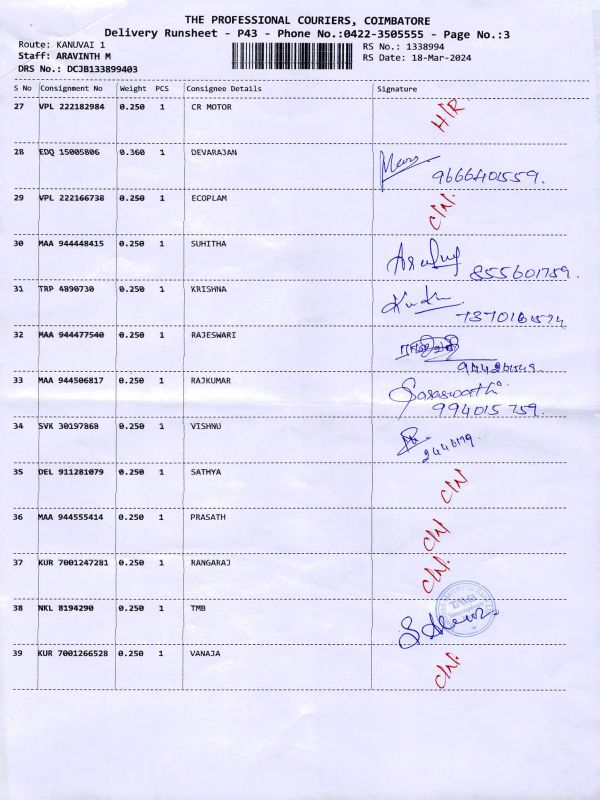 THE PROFESSIONAL COURIERS, COIMBATORE
Delivery Runsheet - P43 - Phone No.:0422-3505555 - Page No.:3
Route: KANUVAI 1 RS No.: 1338994
Staff: ARAVINTH M RS Date: 18-Mar-2024
DRS No.: DCJB133899403
S No Consignment No Weight PCS Consignee Details Signature
27 VPL 222182984 0.250 1 CR MOTOR H/R
28 EDQ 15005806 0.360 1 DEVARAJAN
9666401559.
29 VPL 222166738 0.250 1 ECOPLAM C/N.
30 MAA 944448415 0.250 1 SUHITHA
855601759.
31 TRP 4890730 0.250 1 KRISHNA
32 MAA 944477540 0.250 1 RAJESWARI
33 MAA 944506817 0.250 1 RAJKUMAR
994015759.
34 SVK 30197868 0.250 1 VISHNU
35 DEL 911281079 0.250 1 SATHYA C/N
36 MAA 944555414 0.250 1 PRASATH C/N
37 KUR 7001247281 0.250 1 RANGARAJ C/N.
38 NKL 8194290 0.250 1 TMB
39 KUR 7001266528 0.250 1 VANAJA C/N.